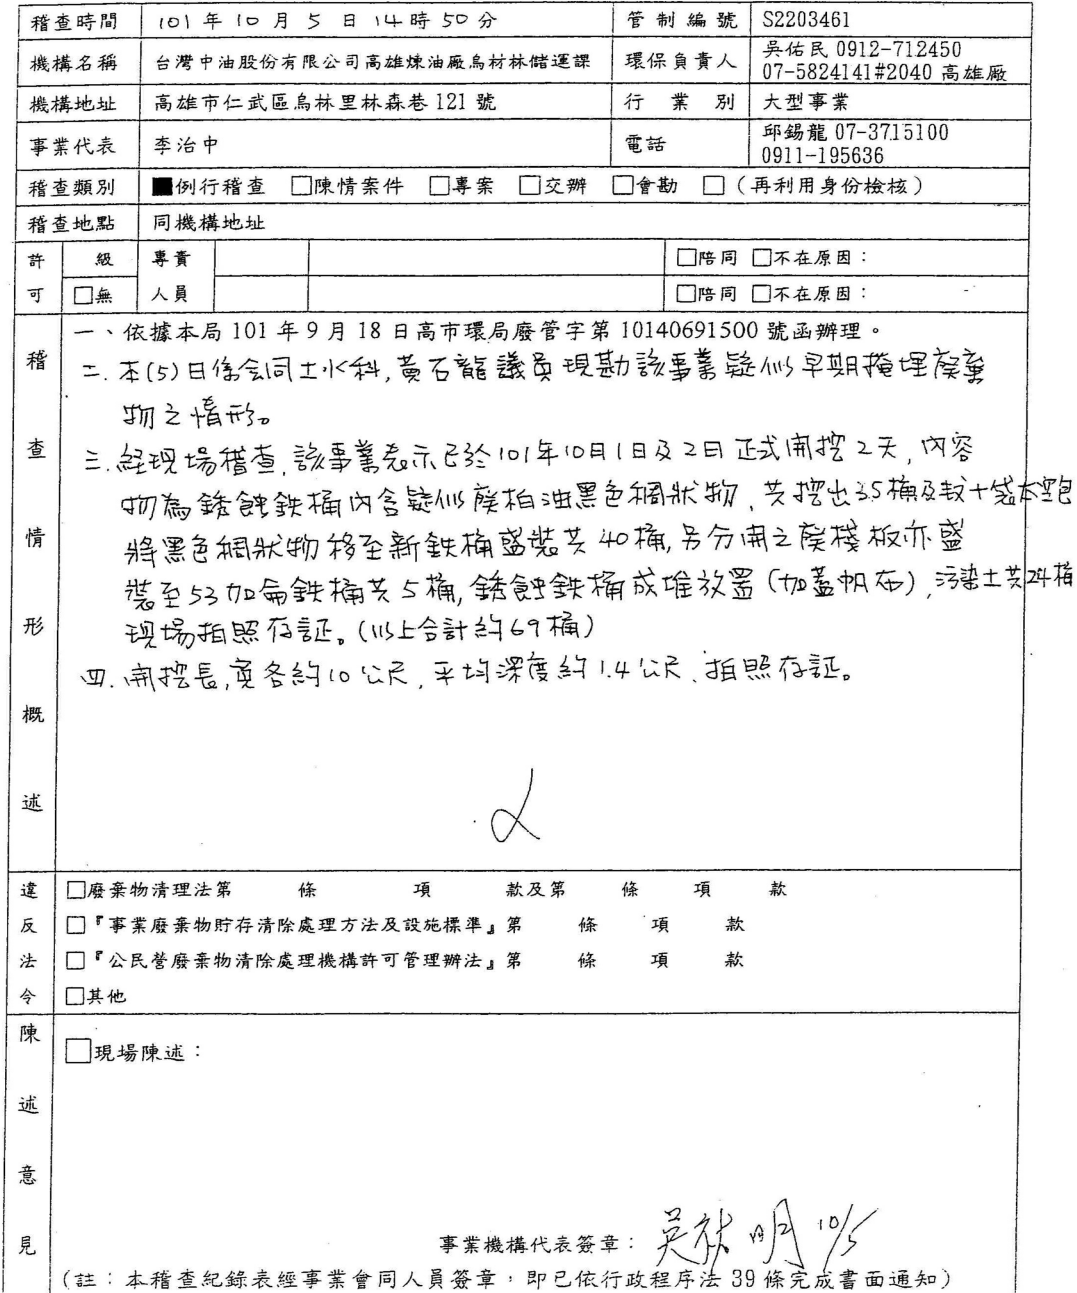 稽查時間 101年10月5日14時50分 管制編號 S2203461
機構名稱 台灣中油股份有限公司高雄煉油廠烏材林儲運課 環保負責人 吳佑民 0912-712450
07-5824141#2040 高雄廠
機構地址 高雄市仁武區烏林里林森巷 121 號 行業別 大型事業
事業代表 李治中 電話 邱錫龍 07-3715100
0911-195636
稽查類別 ■例行稽查 □陳情案件 □專案 □交辦 □會勘 □（再利用身份檢核）
稽查地點 同機構地址
許 級 專責 □陪同 □不在原因：
可 □無 人員 □陪同 □不在原因：
稽查情形概述
一、依據本局 101 年 9 月 18 日高市環局廢管字第 10140691500 號函辦理。
二. 本(5)日係会同土水科,黃石龍議員現勘該事業疑似早期掩埋廢棄
物之情形。
三.経現場稽查,該事業表示已於101年10月1日及2日正式開挖2天,內容
物為銹蝕鉄桶內含疑似廢柏油黑色稠狀物,共挖出35桶及
將黑色稠狀物移至新鉄桶盛裝共40桶,另分開之廢棧板亦盛
裝至53加侖鉄桶共5桶,銹蝕鉄桶成堆放置(加蓋帆布),污染土共24桶
現場拍照存証。(以上合計約69桶)
四.開挖長,寬各約10公尺,平均深度約1.4公尺,拍照存証。
違反法令
□廢棄物清理法第 條 項 款及第 條 項 款
□『事業廢棄物貯存清除處理方法及設施標準』第 條 項 款
□『公民營廢棄物清除處理機構許可管理辦法』第 條 項 款
□其他
陳述意見
□現場陳述：
事業機構代表簽章： 10/5
(註：本稽查紀錄表經事業會同人員簽章，即已依行政程序法 39 條完成書面通知)